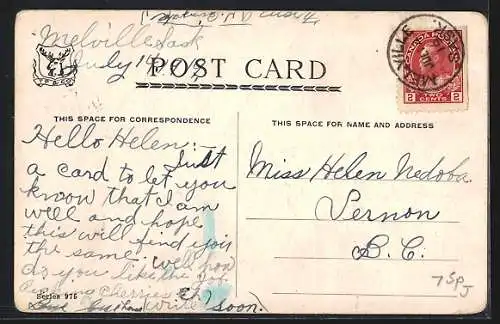 Melville Sask
July 14
POST CARD
CANADA POSTAGE
2 CENTS 2
MELVILLE
SASK
THIS SPACE FOR CORRESPONDENCE
THIS SPACE FOR NAME AND ADDRESS
Hello Helen:-
Just
a card to let you
know that I am
well and hope
this will find you
the same. Well how
do you like the
cherries
write soon.
Series 975
Miss Helen Nedoba
Vernon
B.C.